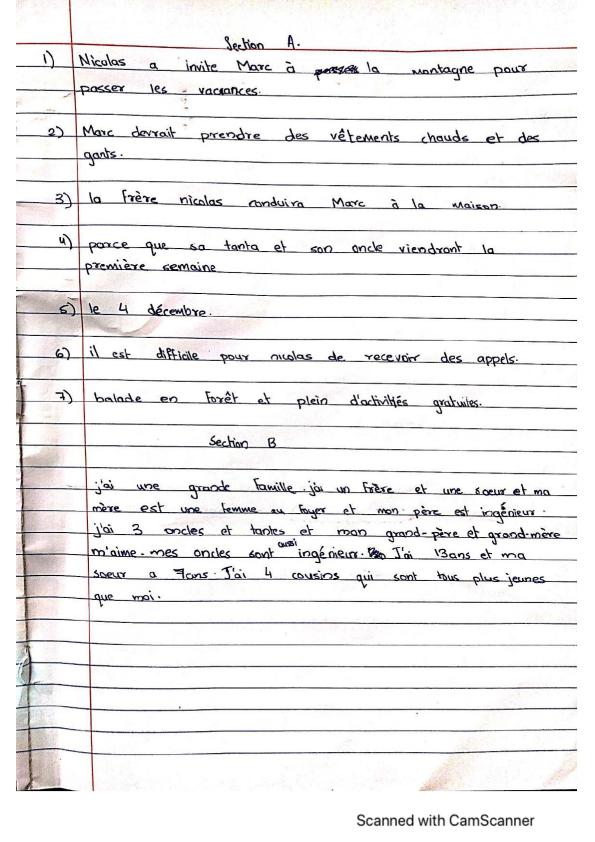 Section A.
1) Nicolas a invite Marc à la montagne pour
passer les vacances.
2) Marc devrait prendre des vêtements chauds et des
gants.
3) la frère nicolas conduira Marc à la maison.
4) parce que sa tanta et son oncle viendront la
première semaine
5) le 4 décembre.
6) il est difficile pour nicolas de recevoir des appels.
7) balade en forêt et plein d'activités gratuites.
Section B
j'ai une grande famille. j'ai un frère et une soeur et ma
mère est une femme au foyer et mon père est ingénieur.
j'ai 3 oncles et tantes et mon grand-père et grand-mère
m'aime. mes oncles sont aussi ingénieur. J'ai 13ans et ma
soeur a 7ans. J'ai 4 cousins qui sont tous plus jeunes
que moi.
Scanned with CamScanner